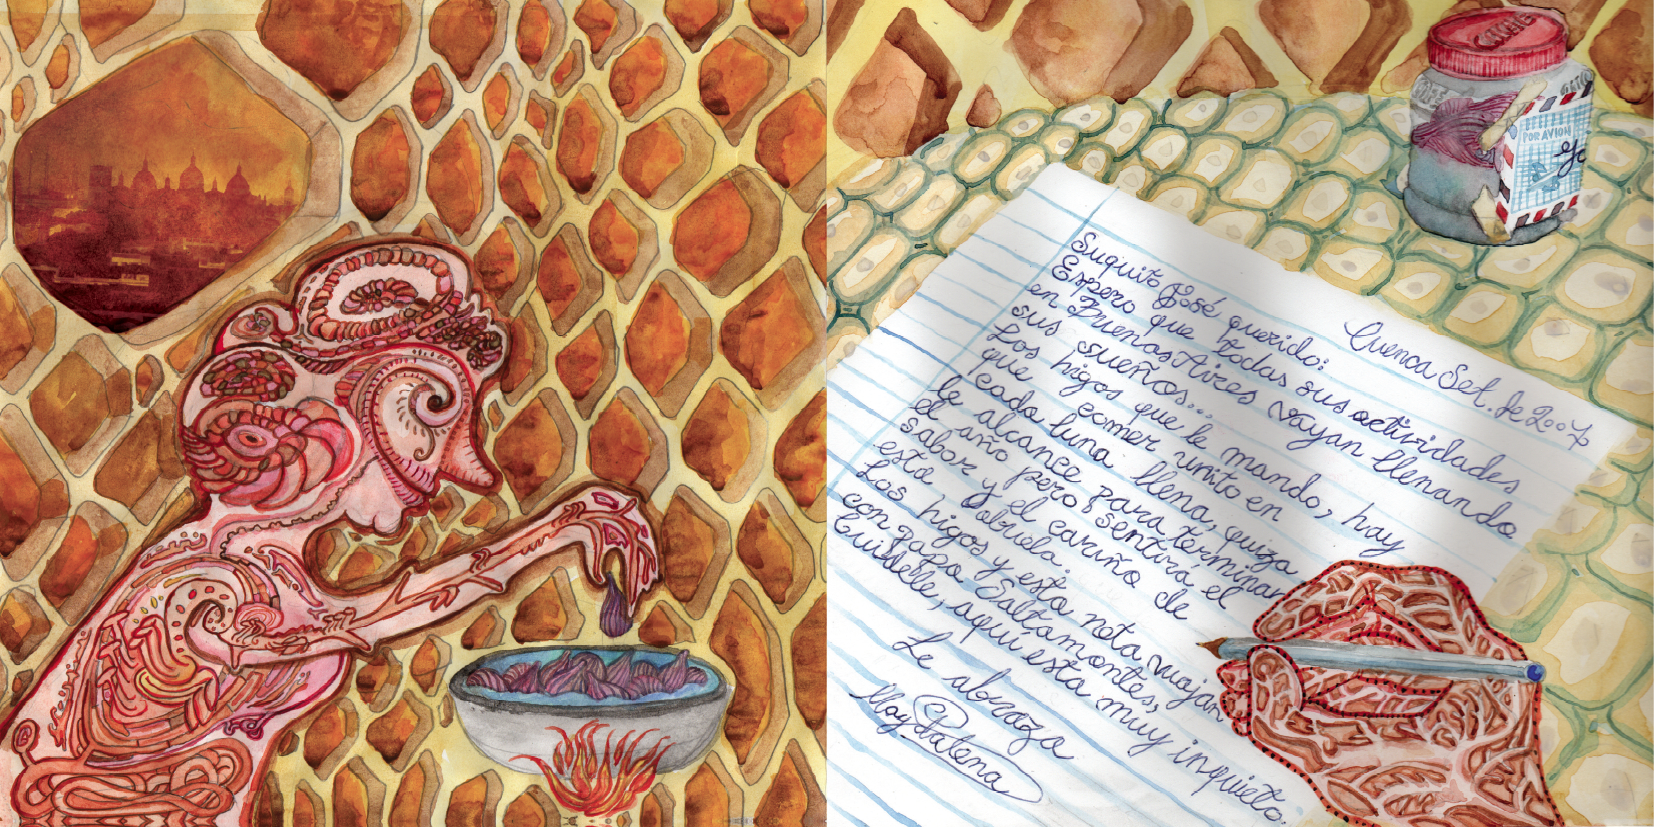 CAFÉ
POR AVION
Cuenca Set. de 2007
Suquito José querido:
Espero que todas sus actividades
en Buenos Aires vayan llenando
sus sueños...
Los higos que le mando, hay
que comer unito en
cada luna llena, quiza
le alcance para términar
el año pero sentirá el
sabor y el cariño de
esta abuela.
Los higos y esta nota, viajan
con papá Saltamontes,
Guidelle, aquí esta muy inquieto.
Le abraza
May Balena